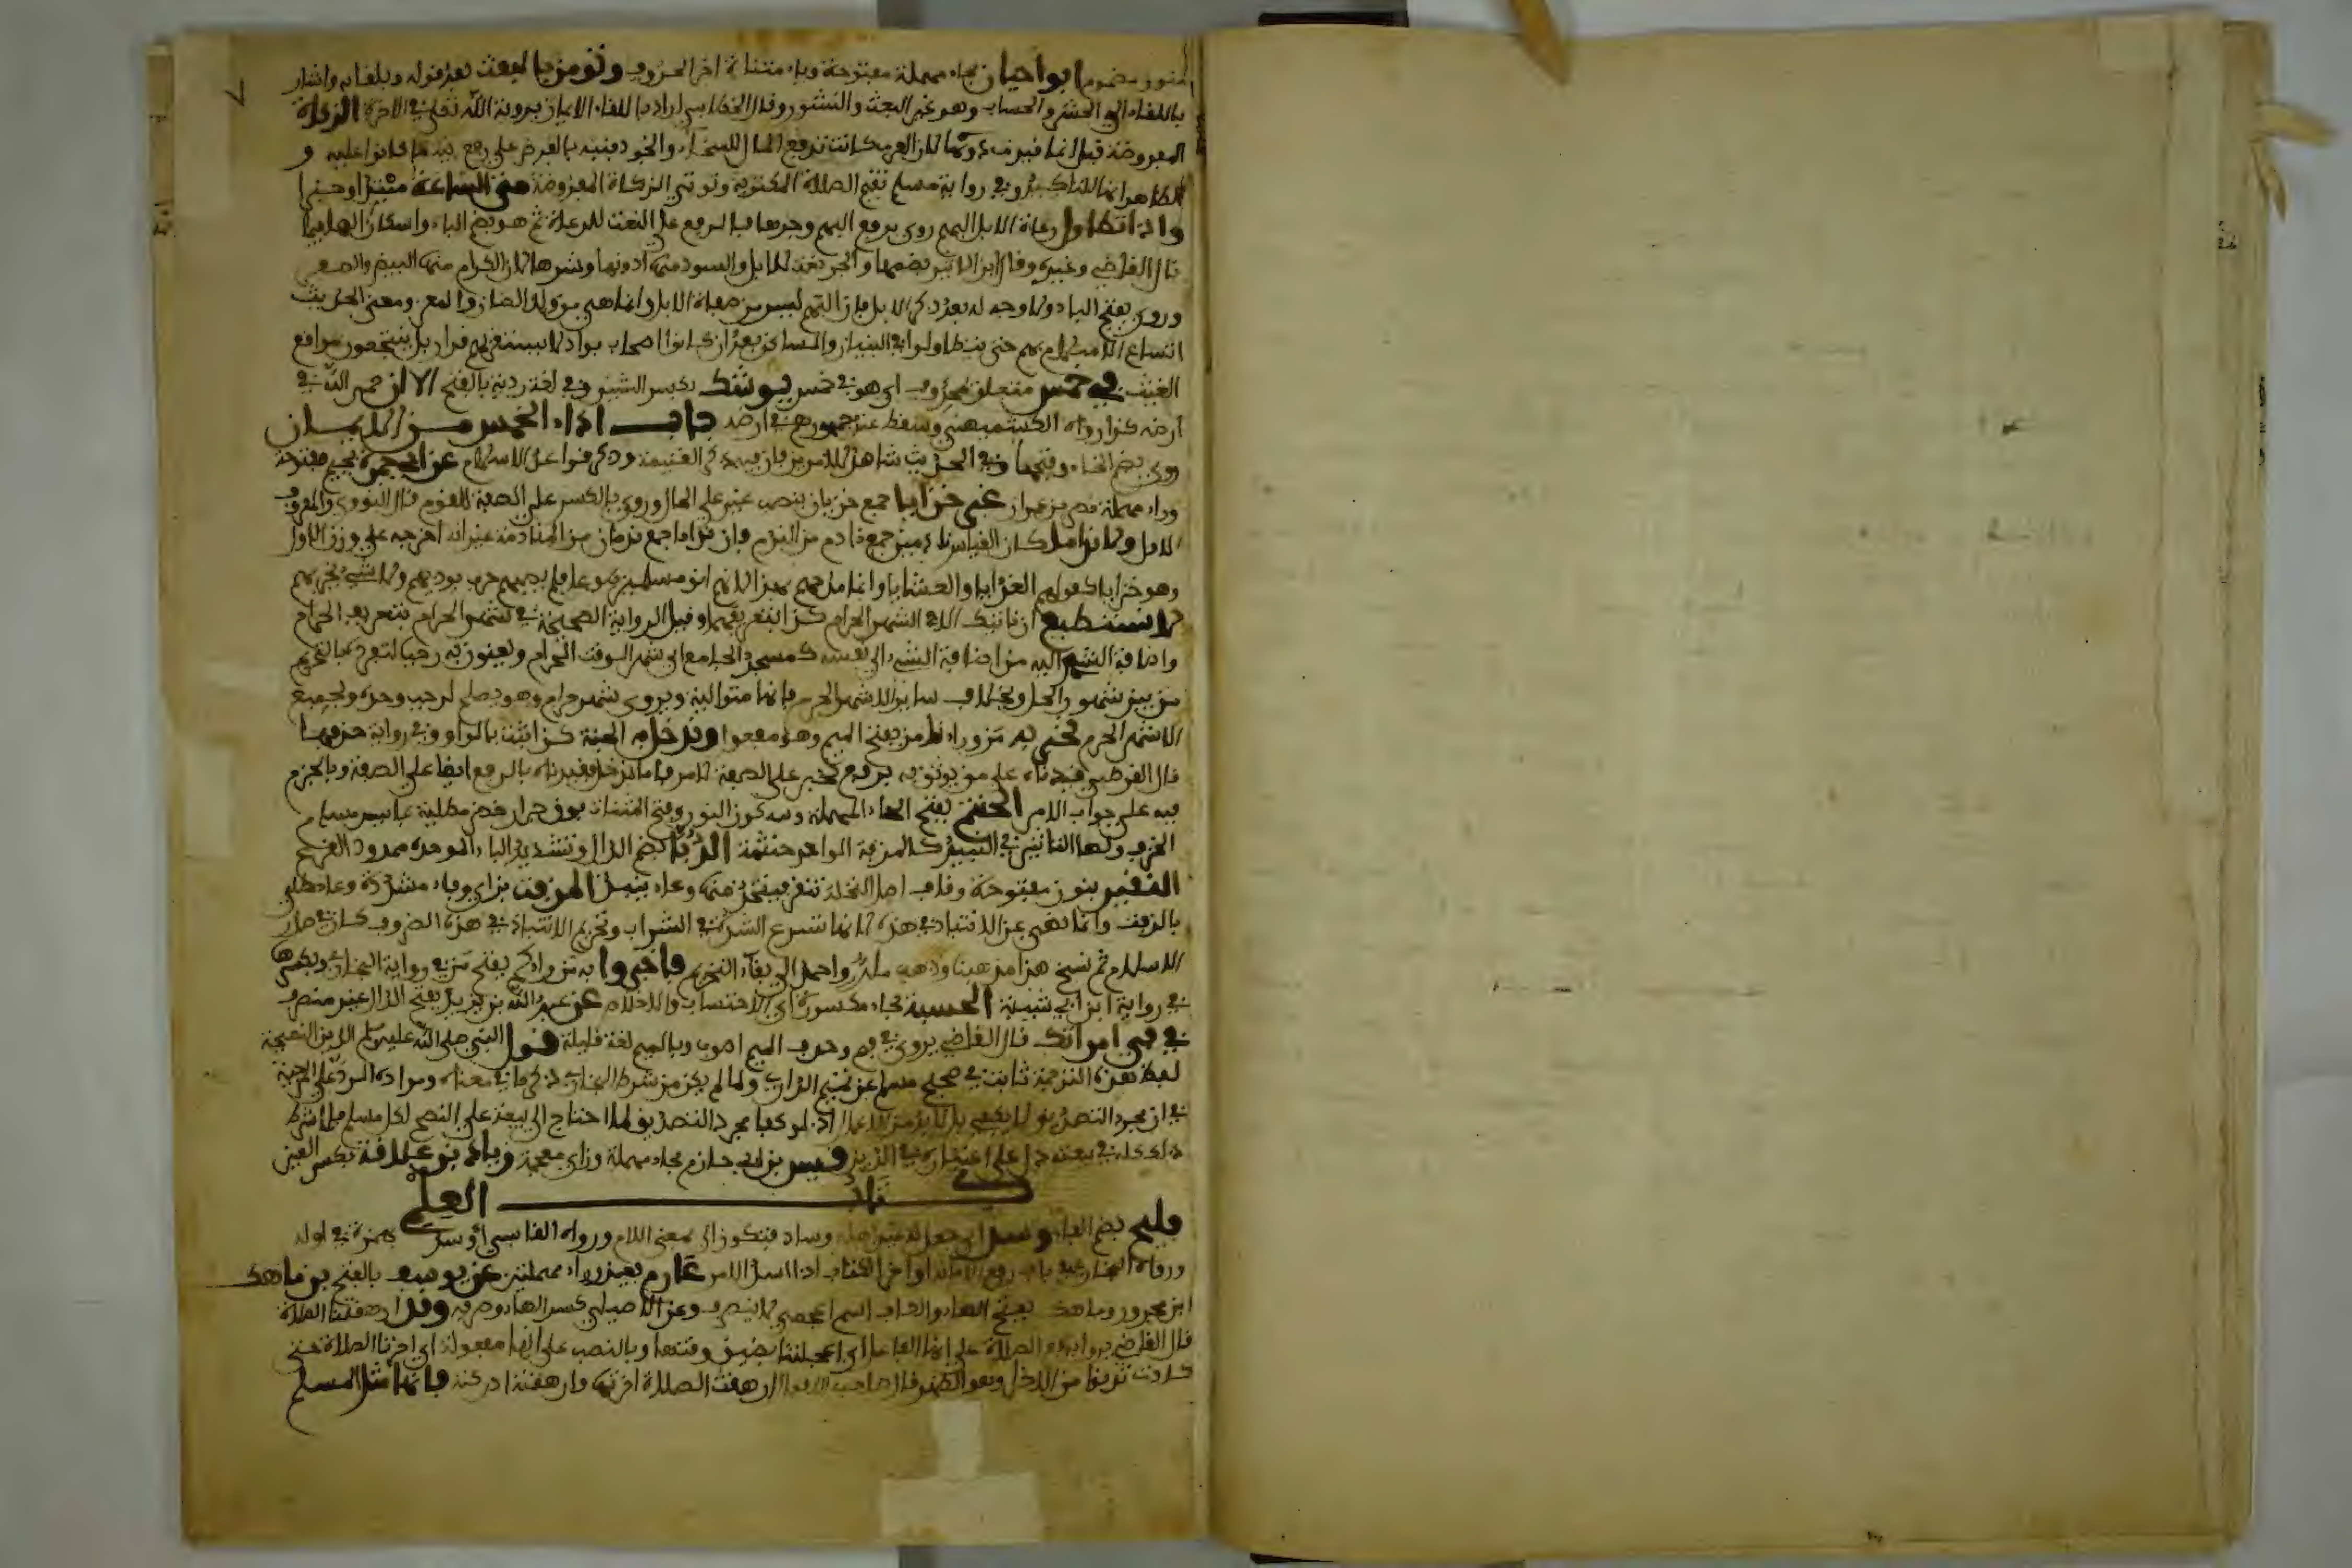 منون مضموم ابو حيان بحاء مهملة مفتوحة وياء مثناة اخر الحروف وتومن بالبعث بعد قوله وبلقايه واشار
باللقاء الى الحشر والحساب وهو غير البعث والنشور وقال الخطابي اراد باللقاء الايمان برؤية الله تعلى في الاخرة الزكاة
المفروضة قيل انما قيد لان العرب كانت تدفع المال للسخاء والجود فنبه بالفرض على رفع ما كانوا عليه و
الظاهر انها للتاكيد وفي رواية مسلم تقيم الصلاة المكتوبة وتوتي الزكاة المفروضة متى الساعة مبتدا وخبر
واذا تطاول رعاة الابل البهم روي برفع البهم وجرها فالرفع على النعت للرعاة ثم هو بضم الباء واسكان الهاء
قال القاضي وغيره وقال ابن الاثير بضمها والجر نعت للابل والسود منها ادونها وشرها لان الكرام منها البيض والصفر
وروي بفتح الباء ولا وجه له بعد ذكر الابل فان البهم ليس من صفاة الابل وانما هي من ولد الضان والمعز ومعنى الحديث
اتساع الاسلام بهم حتى يتطاولوا في البنيان والمساكن بعد ان كانوا اصحاب بواد لا يستقر بهم قرار بل ينتجعون مواقع
الغيث في خمس متعلق بمحذوف اي هو في خمس يوشك بكسر الشين وفي لغة ردية بالفتح الا ان حمى الله في
ارضه كذا رواه الكشميهني وسقط عند جمهورهم في ارضه باب اداء الخمس من الايمان
روي بضم الخاء وفتحها وفي الحديث شاهد للامرين فان فيه ذكر الغنيمة وذكر قواعد الاسلام عن ابي جمرة بجيم مفتوحة
وراء مهملة نصر بن عمران غير خزايا جمع خزيان بنصب غير على الحال وروي بالكسر على الصفة للقوم قال النووي والمعروف
الاول ولا نداما كان القياس نادمين جمع نادم من الندم فان نداما جمع ندمان من المنادمة غير انه اخرجه على وزن الاول
وهو خزايا كقولهم الغدايا والعشايا وانما مدحهم بهذا لانهم اتوا مسلمين طوعا فلم يصبهم حرب يوذيهم ولا سبي يخزيهم
لا نستطيع ان ناتيك الا في الشهر الحرام كذا بتعريفهما وقيل الرواية الصحيحة في شهر الحرام بتعريف الحرام
واضافة الشهر اليه من اضافة الشيء الى نفسه كمسجد الجامع اي شهر الوقت الحرام ويعنون به رجبا لتفرده بالتحريم
من بين شهور الحل وبخلاف ساير الاشهر الحرم فانها متوالية ويروى شهر حرام وهو يصلح لرجب وحده ولجميع
الاشهر الحرم نخبر به من وراءنا من بفتح الميم وهو مفعول وندخل به الجنة كذا ثبت بالواو وفي رواية حذفها
قال القرطبي قيدناه على من يوثق به برفع نخبر على الصفة لامر واما ندخل فقيدناه بالرفع ايضا على الصفة وبالجزم
فيه على جواب الامر الحنتم بفتح الحاء المهملة وسكون النون وفتح المثناة فوق جرار خضر مطلية بما يسد مسام
الخزف ولها التاثير في النبيذ كالمزفة الواحد حنتمة الدبا بضم الدال وتشديد الباء الموحدة ممدود القرع
النقير بنون مفتوحة وقاف اصل النخلة تنقر فيتخذ منها وعاء ينبذ المزفت بزاي وفاء مشددة وعاء طلي
بالزفت وانما نهى عن الانتباذ في هذه لانها تسرع الشدة في الشراب وتحريم الانتباذ في هذه الظروف كان في صدر
الاسلام ثم نسخ هذا مذهبنا وذهب ملك واحمد الى بقاء التحريم فاخبروا به من وراءكم بفتح من في رواية البخاري وبكسرها
في رواية ابن ابي شيبة الحسبة بحاء مكسورة اي الاحتساب والاخلاص عن عبد الله بن يزيد بفتح الدال غير منصرف
في في امراتك قال القاضي يروى في فم وحذف الميم اصوب وبالميم لغة قليلة قول النبي صلى الله عليه وسلم الدين النصيحة
لفظ هذه الترجمة ثابت في صحيح مسلم عن تميم الداري ولما لم يكن من شرط البخاري ذكر ما في معناه ومراده الرد على المرجية
في ان مجرد التصديق لا يكفي بل لا بد من الاعمال اذ لو كفا مجرد التصديق لما احتاج الى بيعته على النصح لكل مسلم فلما شرط
ذلك في بيعته دل على اعتباره في الدين قيس بن ابي حازم بحاء مهملة وزاي معجمة زياد بن علاقة بكسر العين
كتاب العلم
فليح بضم الفاء وسد اي جعل له وساد فتكون الى بمعنى اللام ورواه القابسي اوسد بهمزة في اوله
ورواه البخاري في باب رفع الامانة اواخر الكتاب اذا اسند الامر عارم بعين وراء مهملتين عن يوسف بالفتح بن ماهك
ابن مجرور وماهك بفتح الهاء والكاف اسم اعجمي لا ينصرف وعن الاصيلي كسر الهاء وصرفه وقد ارهقتنا الصلاة
قال القاضي يروى برفع الصلاة على انها الفاعل اي اعجلتنا بضيق وقتها وبالنصب على انها مفعولة اي اخرنا الصلاة حتى
كادت تدنوا من الاخرى وهو اظهر قال صاحب الافعال ارهقت الصلاة اخرتها وارهقته ادركته فانها مثل المسلم